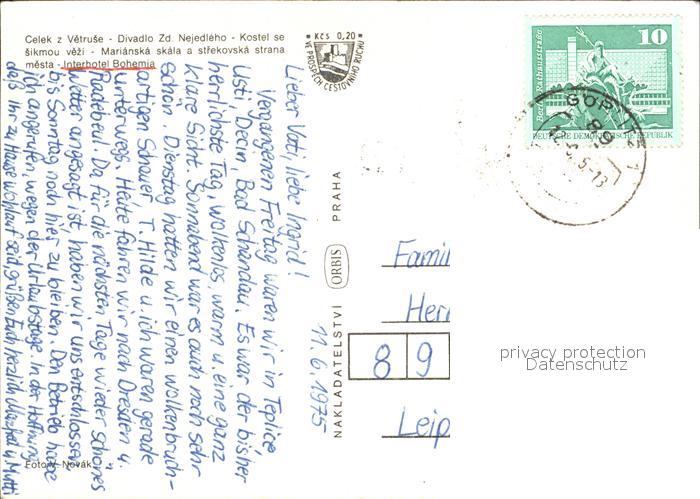 Celek z Větruše - Divadlo Zd. Nejedlého - Kostel se
šikmou věží - Mariánská skála a střekovská strana
města - Interhotel Bohemia
Kčs 0,20
VE PROSPĚCH CESTOVNÍHO RUCHU
Lieber Vati, liebe Ingrid!
Vergangenen Freitag waren wir in Teplice,
Usti, Decin, Bad Schandau. Es war der bisher
herrlichste Tag, wolkenlos, warm u. eine ganz
klare Sicht. Sonnabend war es auch noch sehr
schön. Dienstag hatten wir einen wolkenbruch-
artigen Schauer. T. Hilde u. ich waren gerade
unterwegs. Heute fahren wir nach Dresden u.
Radebeul. Da für die nächsten Tage wieder schönes
Wetter angesagt ist, haben wir uns entschlossen
bis Sonntag noch hier zu bleiben. Den Betrieb habe
ich angerufen, wegen der Urlaubstage. In der Hoffnung
daß Ihr zu Hause wohlauf seid grüßen Euch herzlich u. Mutti
Foto V. Novák
11.6.1975
NAKLADATELSTVÍ ORBIS PRAHA
Berlin, Rathausstraße
10
DEUTSCHE DEMOKRATISCHE REPUBLIK
Famil
Herr
8 9
Leip
privacy protection
Datenschutz